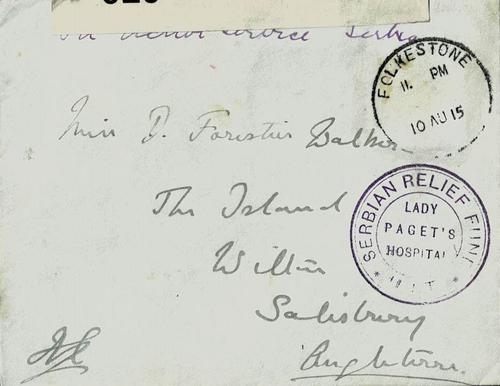 On Active Service Serbia
FOLKESTONE
11. PM
10 AU 15
Miss D. Forestier Walker
The Island
Wilton
Salisbury
Angleterre.
SERBIAN RELIEF FUND
LADY
PAGET'S
HOSPITAL